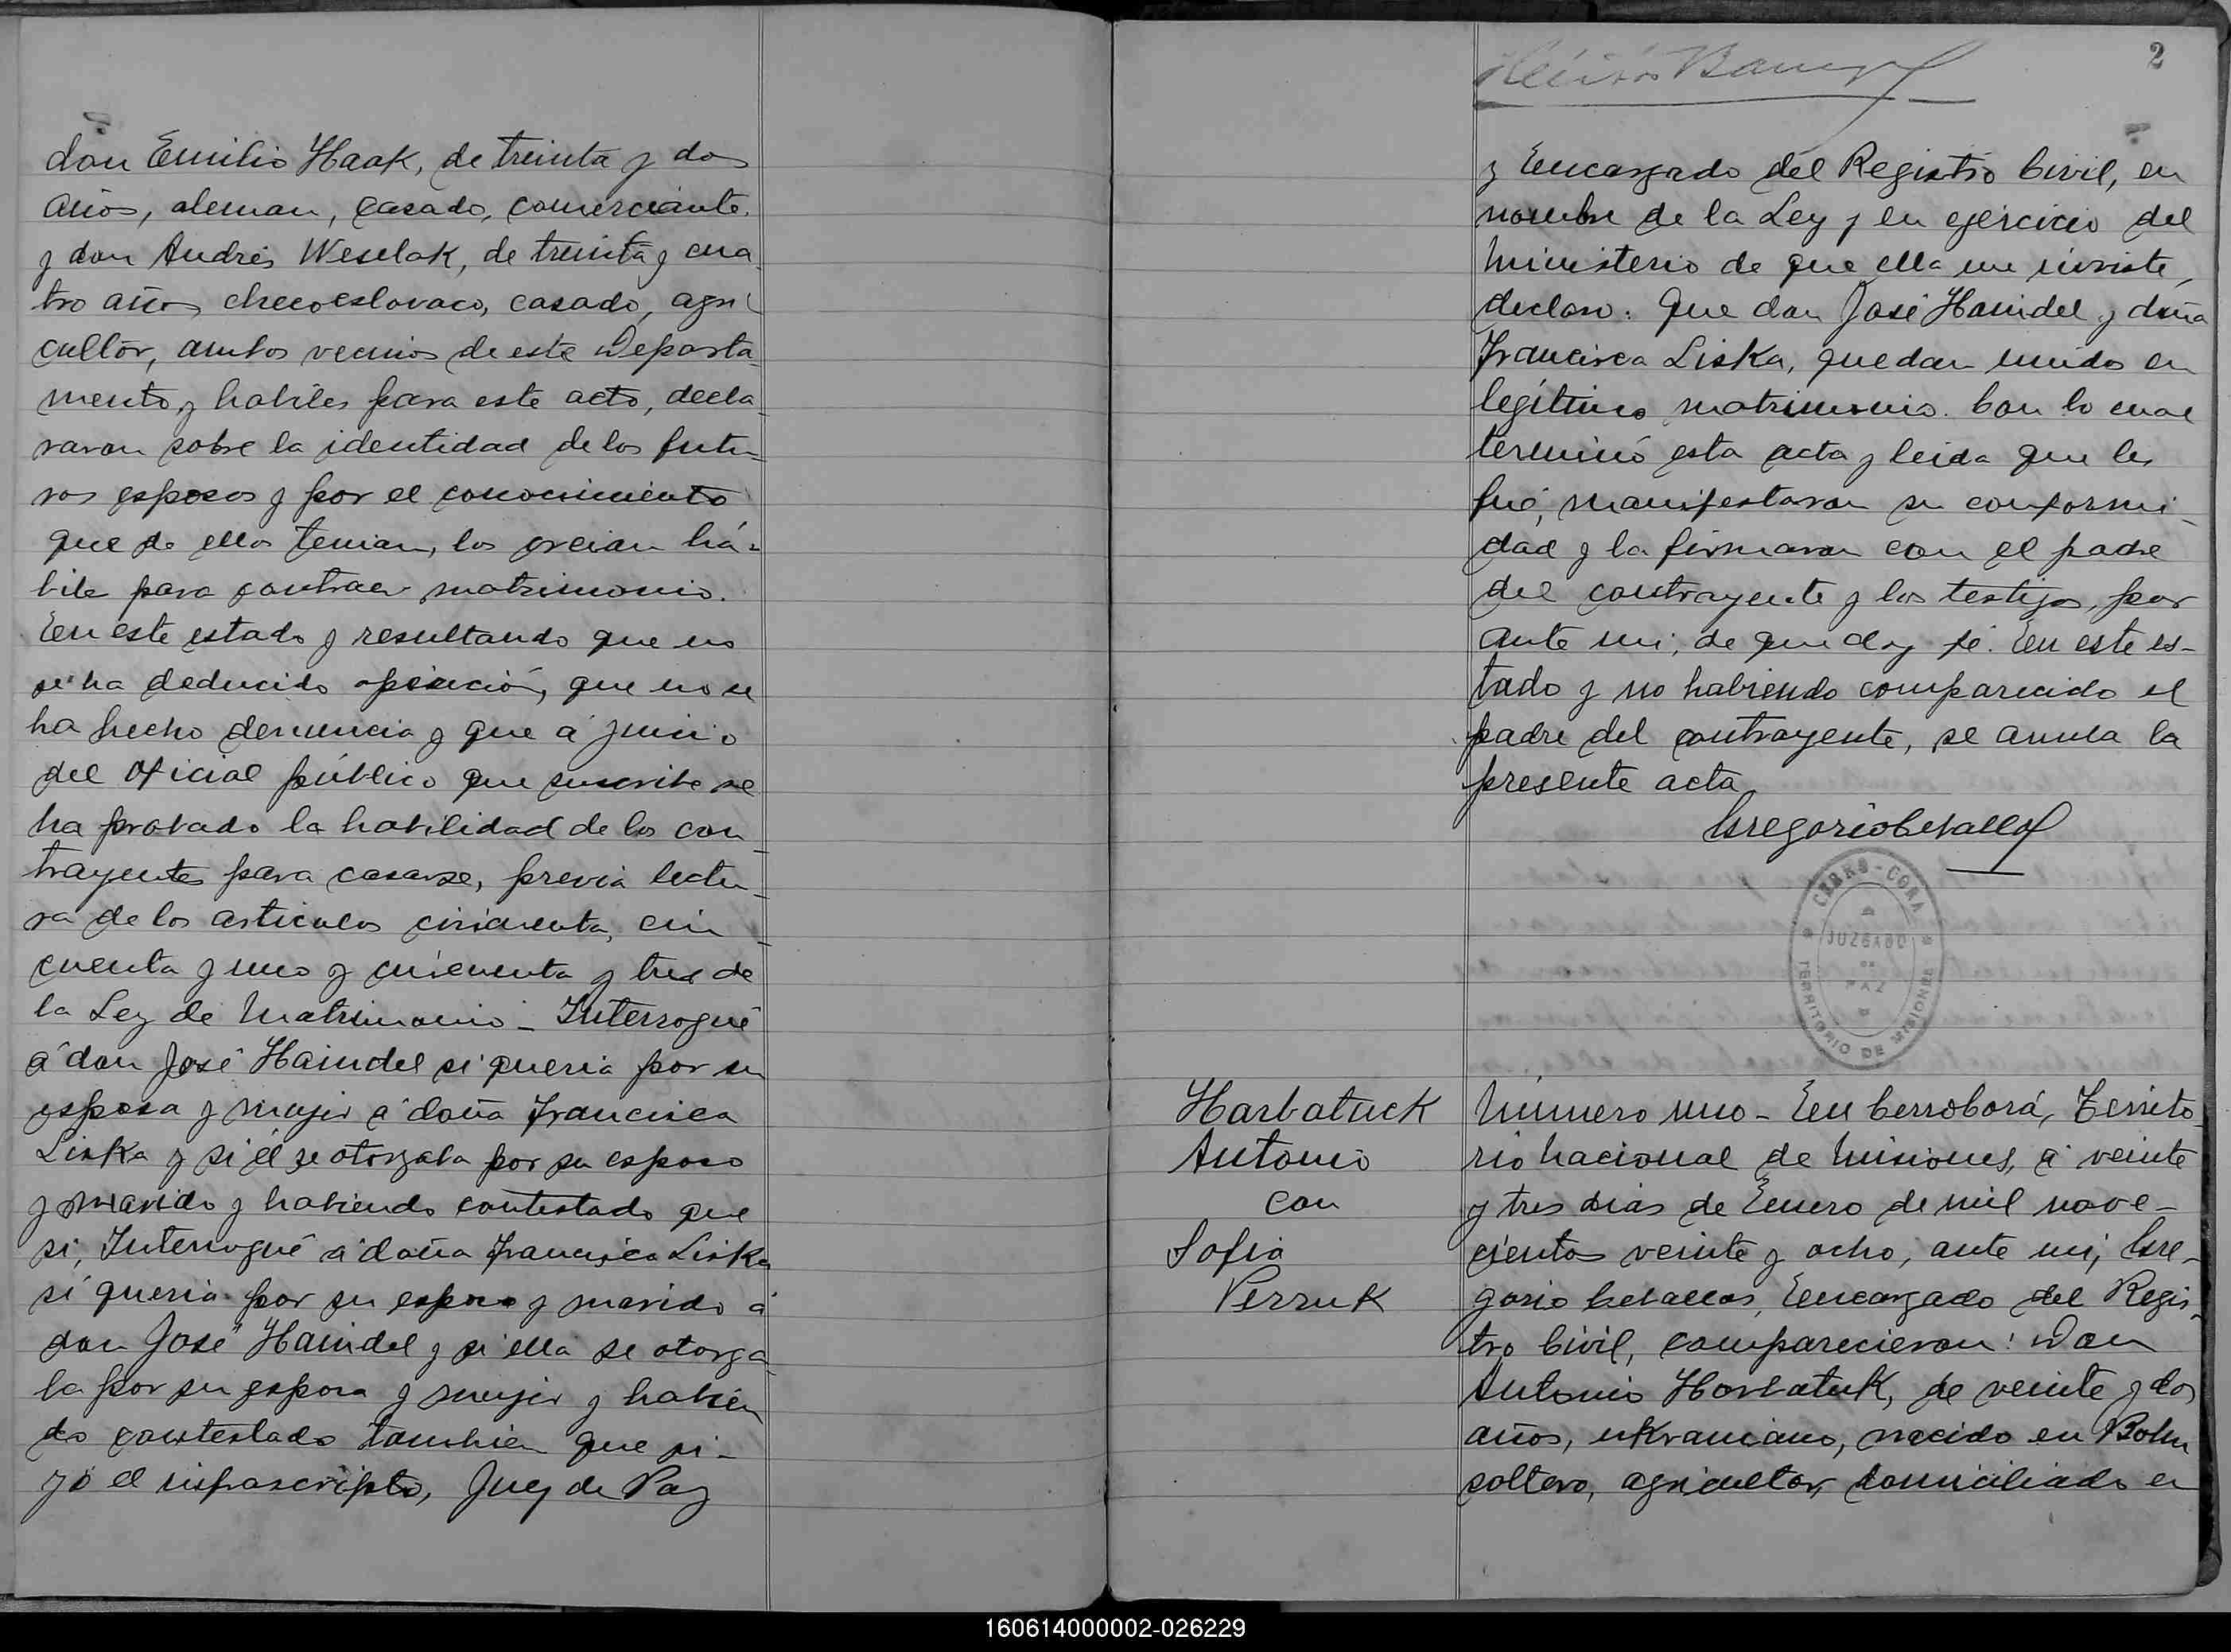 don Emilio Haak, de treinta y dos
años, aleman, casado, comerciante.
y don Andrés Weselak, de treinta y cua
tro años checoeslovaco, casado, agri
cultor, ambos vecinos de este Departa
mento, y habiles para este acto, decla
raron sobre la identidad de los futu=
ros esposos y por el conocimiento
que de ellos tenian, los creian há=
bile para contraer matrimonio.
En este estado y resultando que no
se ha deducido oposición, que no se
ha hecho denuncia y que á juicio
del oficial público que suscribe se
ha probado la habilidad de los con_
trayentes para casarse, previa lectu_
ra de los articulos cincuenta, cin_
cuenta y uno y cincuenta y tres de
la Ley de Matrimonio_ Interrogué
á don José Haindel si queria por su
esposa y mujer á doña Francisca
Liska y si él se otorgaba por su esposo
y marido y habiendo contestado que
si, Interrogué á doña Francisca Liska
si queria por su esposo y marido á
don José Haindel y si ella se otorga
ba por su esposa y mujer y habien
do contestado tambien que si_
yo el infrascripto, Juez de Paz
2
y Encargado del Registro Civil, en
nombre de la Ley y en ejercicio del
Ministerio de que ella me inviste,
declaro: Que don José Haindel y doña
Francisca Liska, quedan unidos en
legítimo matrimonio. Con lo cual
terminó esta acta y leida que les
fué, manifestaron su conformi_
dad y la firmaron con el padre
del contrayente y los testigos, por
ante mi, de que doy fé. En este es_
tado y no habiendo comparecido el
padre del contrayente, se anula la
presente acta.
Gregorio Cevallos
CERRO-CORÁ
JUZGADO
DE
PAZ
TERRITORIO DE MISIONES
Harbatuck
Antonio
con
Sofia
Perzuk
Número uno_ En Cerro Corá, Territo_
rio Nacional de Misiones, á veinte
y tres dias de Enero de mil nove_
cientos veinte y ocho, ante mi, Gre_
gorio Cevallos, Encargado del Regis_
tro Civil, comparecieron: Don
Antonio Horbatuk, de veinte y dos
años, ukraniano, nacido en
soltero, agricultor, domiciliado en
160614000002-026229